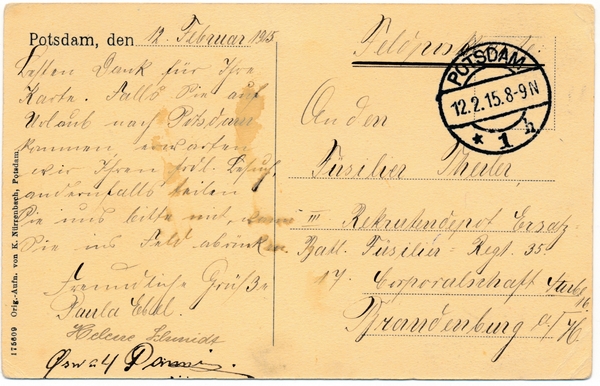 Potsdam, den 12. Februar 1915
Besten Dank für Ihre
Karte. Falls Sie auf
Urlaub nach Potsdam
kommen, erwarten
wir Ihren frdl. Besuch,
andernfalls teilen
Sie uns bitte mit, wann
Sie ins Feld abrücken.
Freundliche Grüße
Paula
Helene Schmidt
Oswald
Feldpostkarte
POTSDAM
12.2.15.8-9N
* 1 h
An den
Füsilier
III Rekrutendepot Ersatz-
Batl. Füsilier-Regt. 35
17. Corporalschaft
Brandenburg a/H
175609 Orig.-Aufn. von K. Nürgenbach, Potsdam